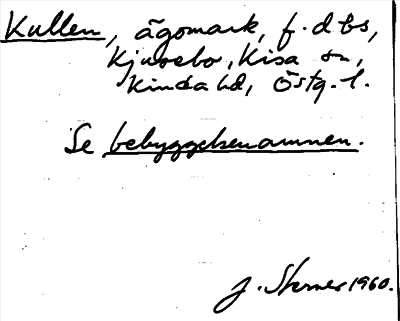 Kullen, ägomark, f. d bs,
Kjusebo, Kisa sn,
Kinda hd, Östg. l.
Se bebyggelsenamnen.
J. Sterner 1960.